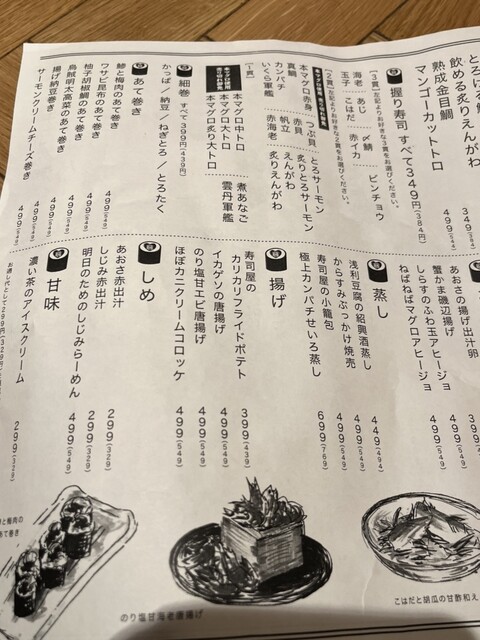 飲める炙りえんがわ
熟成金目鯛
マンゴーカットトロ
349(384)
499(549)
握り寿司 すべて349円(384円)
【3貫】左記よりお好きな3貫をお選びください。
海老 あじ 〆鯖 ビンチョウ
玉子 こはだ 赤イカ
【2貫】左記よりお好きな2貫をお選びください。
本マグロ赤身 つぶ貝 とろサーモン
真鯛 赤貝 炙りとろサーモン
カンパチ 帆立 えんがわ
いくら軍艦 赤海老 炙りえんがわ
【1貫】
本マグロ中トロ 煮あなご
本マグロ大トロ 雲丹軍艦
本マグロ炙り大トロ
細巻 すべて399円(439円)
かっぱ／納豆／ねぎとろ／とろたく
あて巻き
鯵と梅肉のあて巻き 499(549)
ワサビ昆布のあて巻き 499(549)
柚子胡椒鯛のあて巻き 499(549)
烏賊明太高菜のあて巻き 499(549)
揚げ納豆巻き 499(549)
サーモンクリームチーズ巻き 499(549)
あおさの揚げ出汁卵
蟹かま磯辺揚げ 499(549)
しらすのふわ玉アヒージョ 499(549)
ねばねばマグロアヒージョ 499(549)
蒸し
浅利豆腐の紹興酒蒸し 449(494)
からすみぶっかけ焼売 449(494)
寿司屋の小籠包 499(549)
極上カンパチせいろ蒸し 699(769)
揚げ
寿司屋の
カリカリフライドポテト 399(439)
イカゲソの唐揚げ 499(549)
のり塩甘エビ唐揚げ 499(549)
ほぼカニクリームコロッケ 499(549)
しめ
あおさ赤出汁 299(329)
しじみ赤出汁 299(329)
明日のためのしじみらーめん 499(549)
甘味
濃い茶のアイスクリーム 299(329)
あて巻き
のり塩甘海老唐揚げ
こはだと胡瓜の甘酢和え